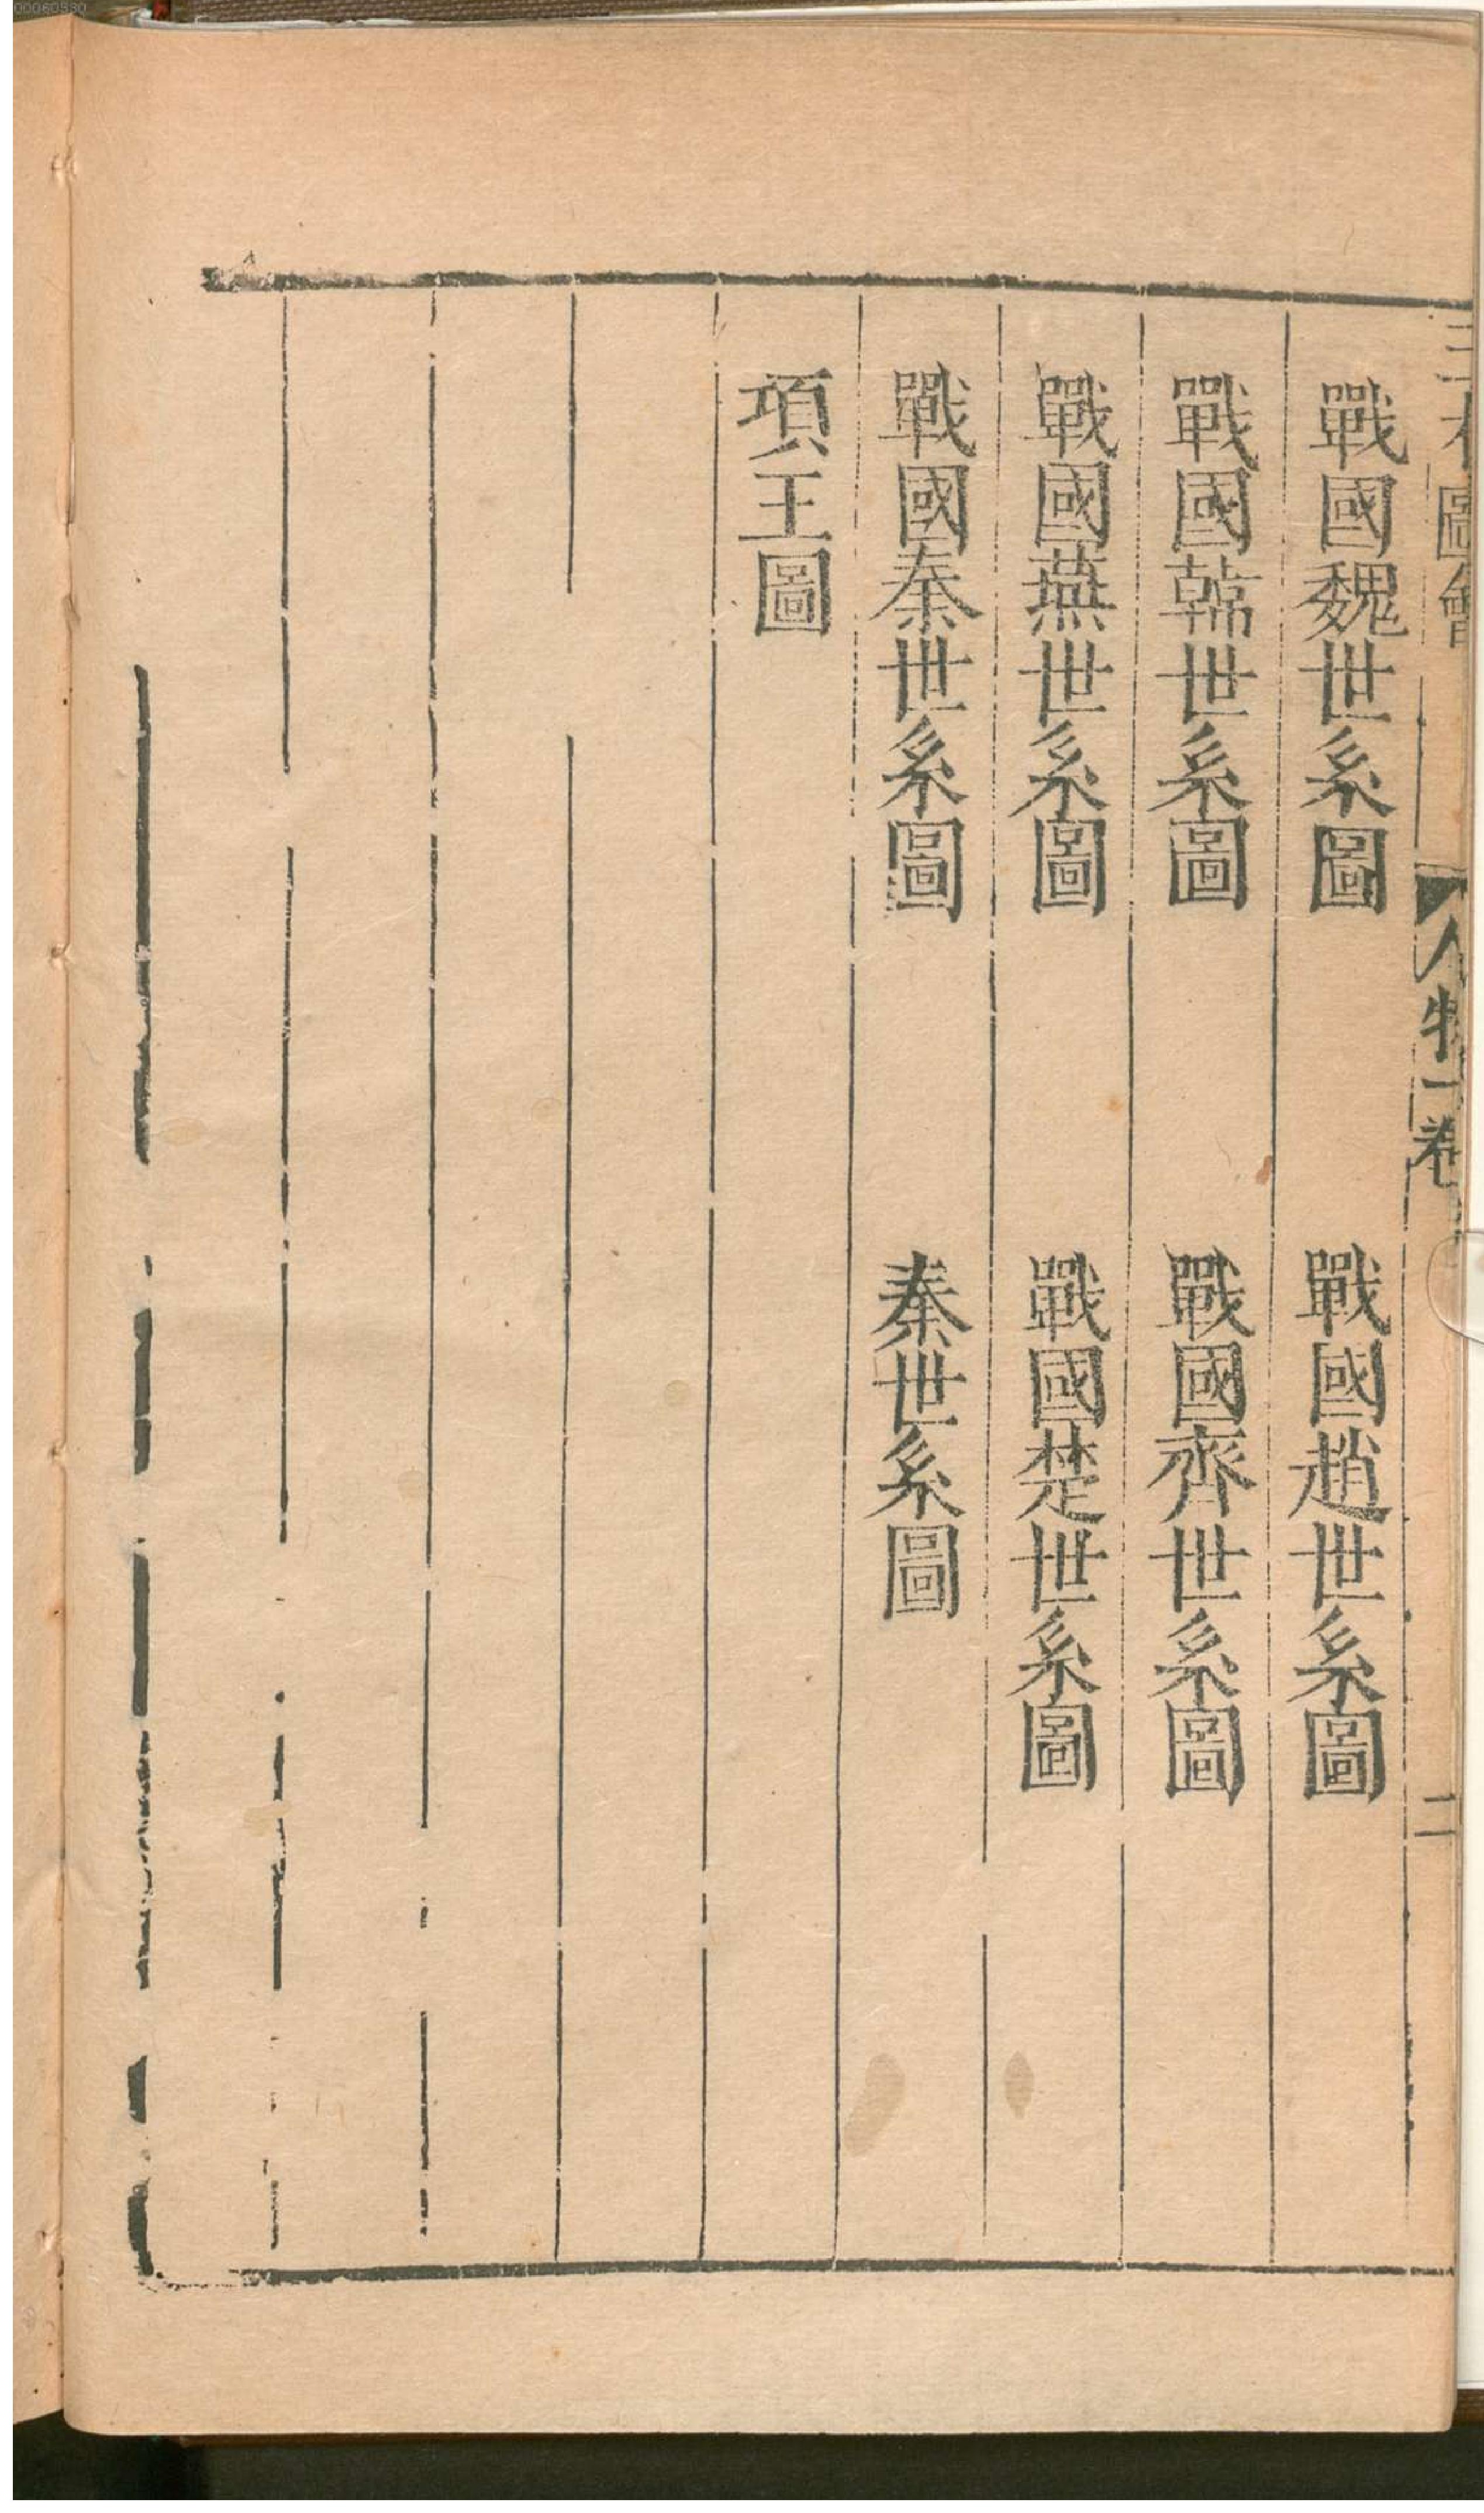 三才圖會 人物一卷 二
戰國魏世系圖 戰國趙世系圖
戰國韓世系圖 戰國齊世系圖
戰國燕世系圖 戰國楚世系圖
戰國秦世系圖 秦世系圖
項王圖
00060530